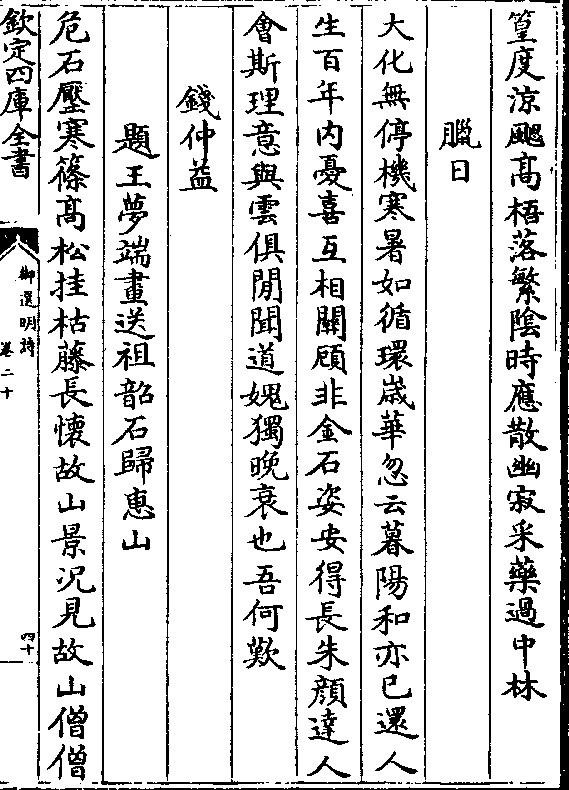 篁度涼颸高梧落繁陰時應散幽寂采藥過中林
臘日
大化無停機寒暑如循環歲華忽云暮陽和亦已還人
生百年內憂喜互相關顧非金石姿安得長朱顏達人
會斯理意與雲俱閒聞道媿獨晚衰也吾何歎
錢仲益
題王夢端畫送祖韶石歸惠山
危石壓寒篠高松挂枯藤長懷故山景況見故山僧僧
欽定四庫全書
御選明詩
卷二十
四十